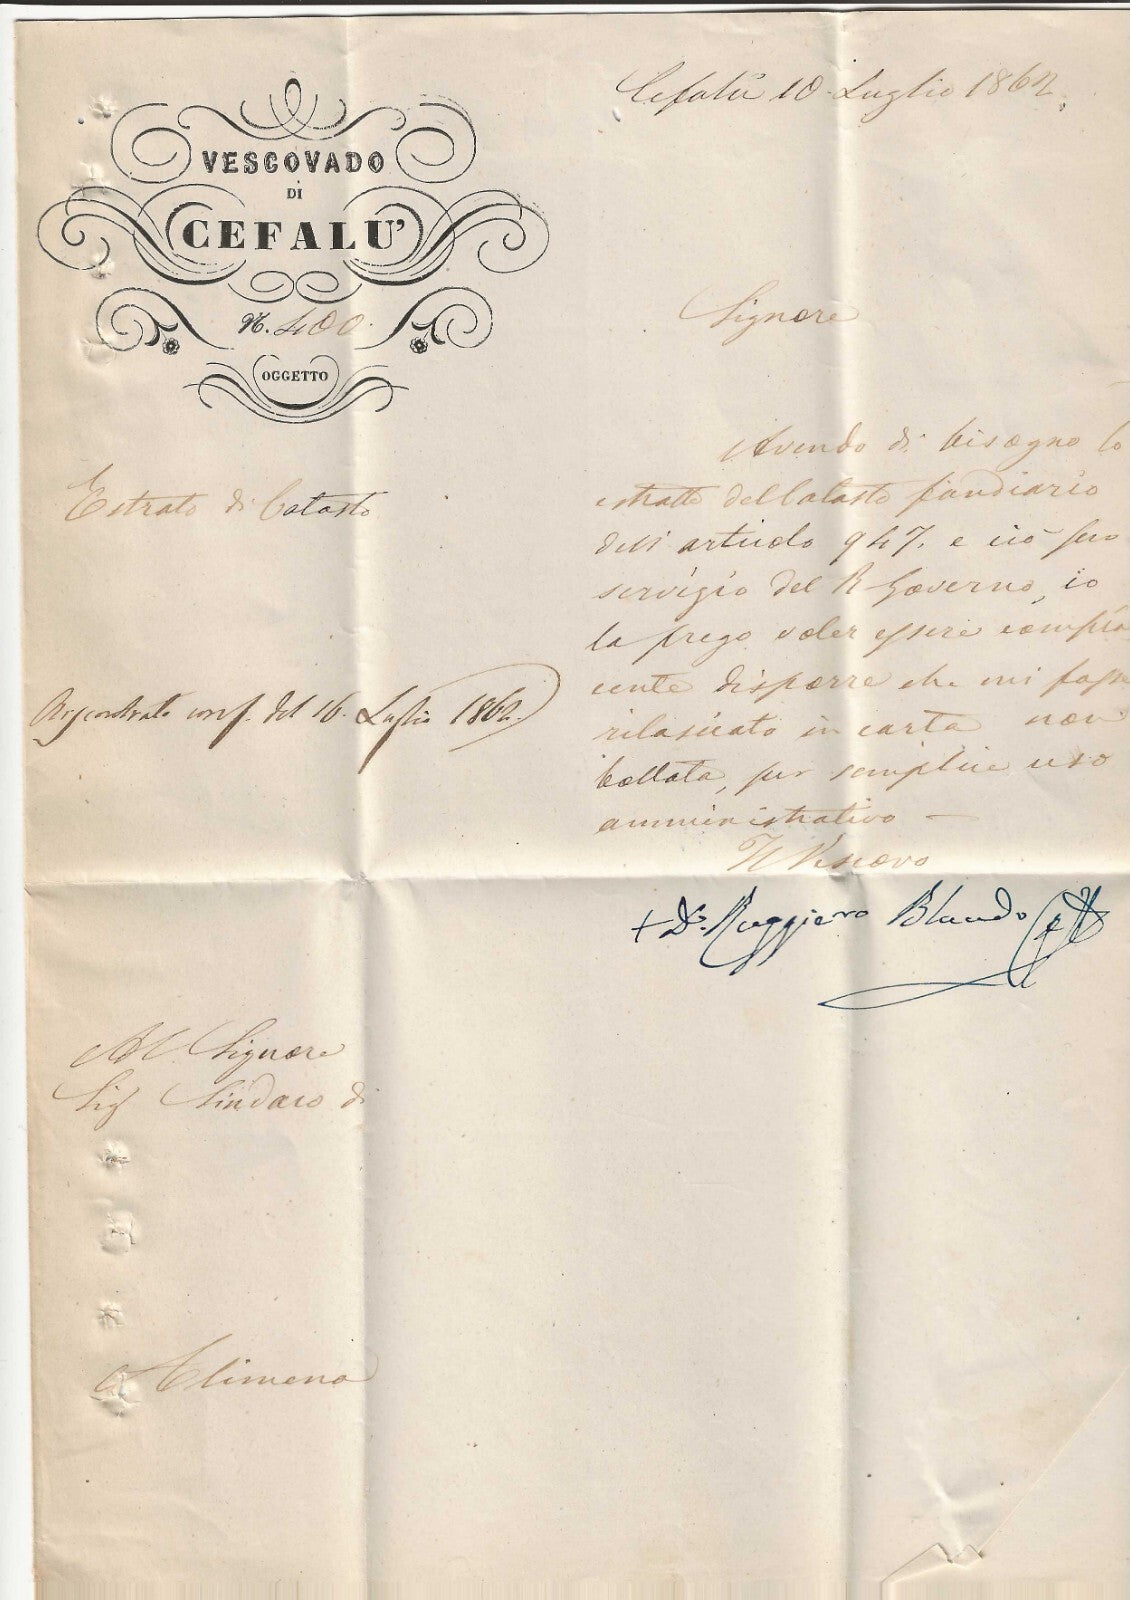 VESCOVADO
DI
CEFALU'
N. 400.
OGGETTO
Estrato di Catasto
Riscontrato 16. Luglio 1862.
Cefalù 10 Luglio 1862.
Signore
Avendo di bisogno lo
estratto del Catasto fondiario
dell'articolo 947. e ciò per
servigio del R Governo, io
la prego voler essere compia
cente disporre che mi fosse
rilasciato in carta non
bollata, per semplice uso
amministrativo —
Il Vescovo
+ Dr. Ruggiero Blundo
Al Signore
Sig Sindaco di
Alimena